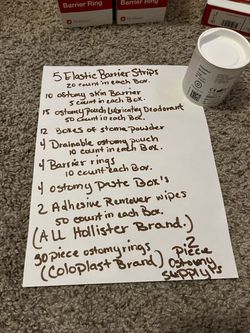 Barrier Ring
Barrier Ring
5 Elastic Barrier Strips
20 count in each Box.
10 ostomy skin Barrier
5 count in each Box.
15 ostomy pouch Lubricating Deodorant
50 count in each Box.
12 Boxes of stoma powder
4 Drainable ostomy pouch
10 count in each Box.
4 Barrier rings
10 count each Box.
4 ostomy Paste Box's
2 Adhesive Remover wipes
50 count in each Box.
(ALL Hollister Brand.)
30 piece ostomy rings
(Coloplast Brand)
2
Piece
Ostomy
Supply's